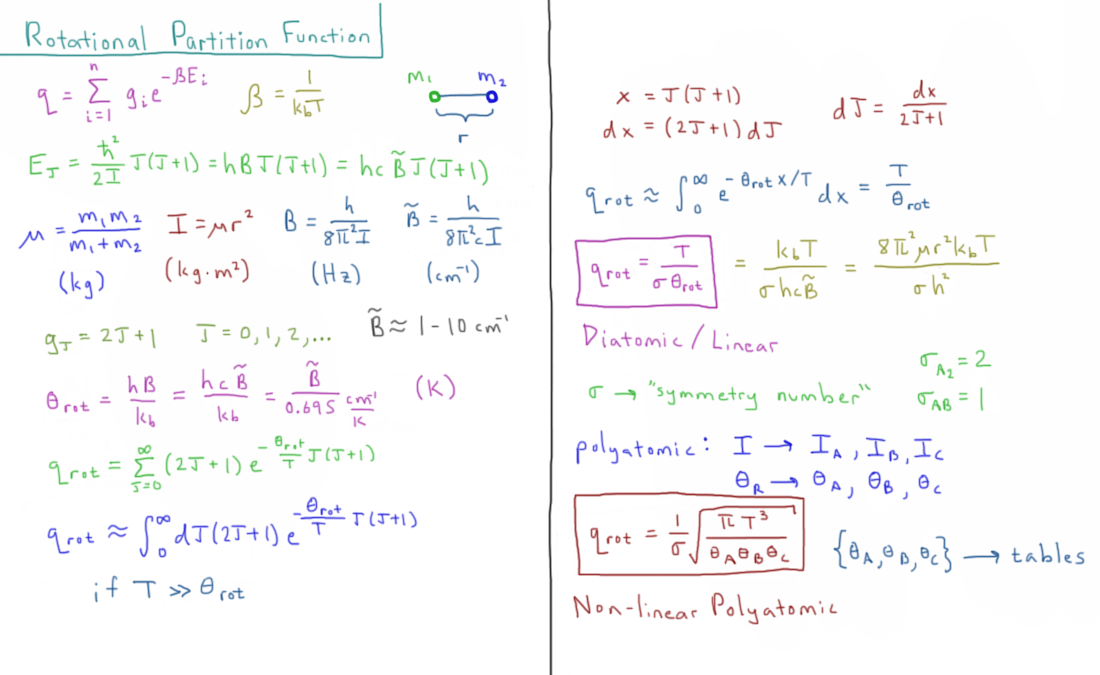 Rotational Partition Function
q = Σ_{i=1}^{n} g_i e^{-βE_i}    β = 1/(k_b T)    m_1    m_2
r
E_J = ħ²/(2I) J(J+1) = hBJ(J+1) = hcB̃J(J+1)
μ = m_1 m_2/(m_1 + m_2)    I = μr²    B = h/(8π²I)    B̃ = h/(8π²cI)
(kg)    (kg·m²)    (Hz)    (cm⁻¹)
g_J = 2J+1    J = 0, 1, 2, ...    B̃ ≈ 1 - 10 cm⁻¹
θ_rot = hB/k_b = hcB̃/k_b = B̃/(0.695 cm⁻¹/K)    (K)
q_rot = Σ_{J=0}^{∞} (2J+1) e^{-θ_rot/T J(J+1)}
q_rot ≈ ∫_0^∞ dJ(2J+1) e^{-θ_rot/T J(J+1)}
if T >> θ_rot
x = J(J+1)
dx = (2J+1)dJ    dJ = dx/(2J+1)
q_rot ≈ ∫_0^∞ e^{-θ_rot x/T} dx = T/θ_rot
q_rot = T/(σθ_rot) = k_b T/(σhcB̃) = 8π²μr²k_b T/(σh²)
Diatomic / Linear
σ → "symmetry number"    σ_{A_2} = 2
σ_{AB} = 1
polyatomic: I → I_A, I_B, I_C
θ_R → θ_A, θ_B, θ_C
q_rot = 1/σ √(πT³/(θ_A θ_B θ_C))    {θ_A, θ_B, θ_C} → tables
Non-linear Polyatomic